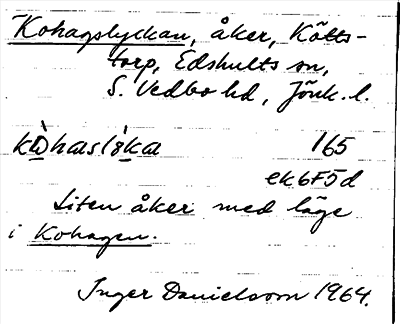 Kohagslyckan, åker, Kötts-
torp, Edshults sn,
S. Vedbo hd, Jönk. l.
165
ek6F5d
Liten åker med läge
i Kohagen.
Inger Danielsson 1964.